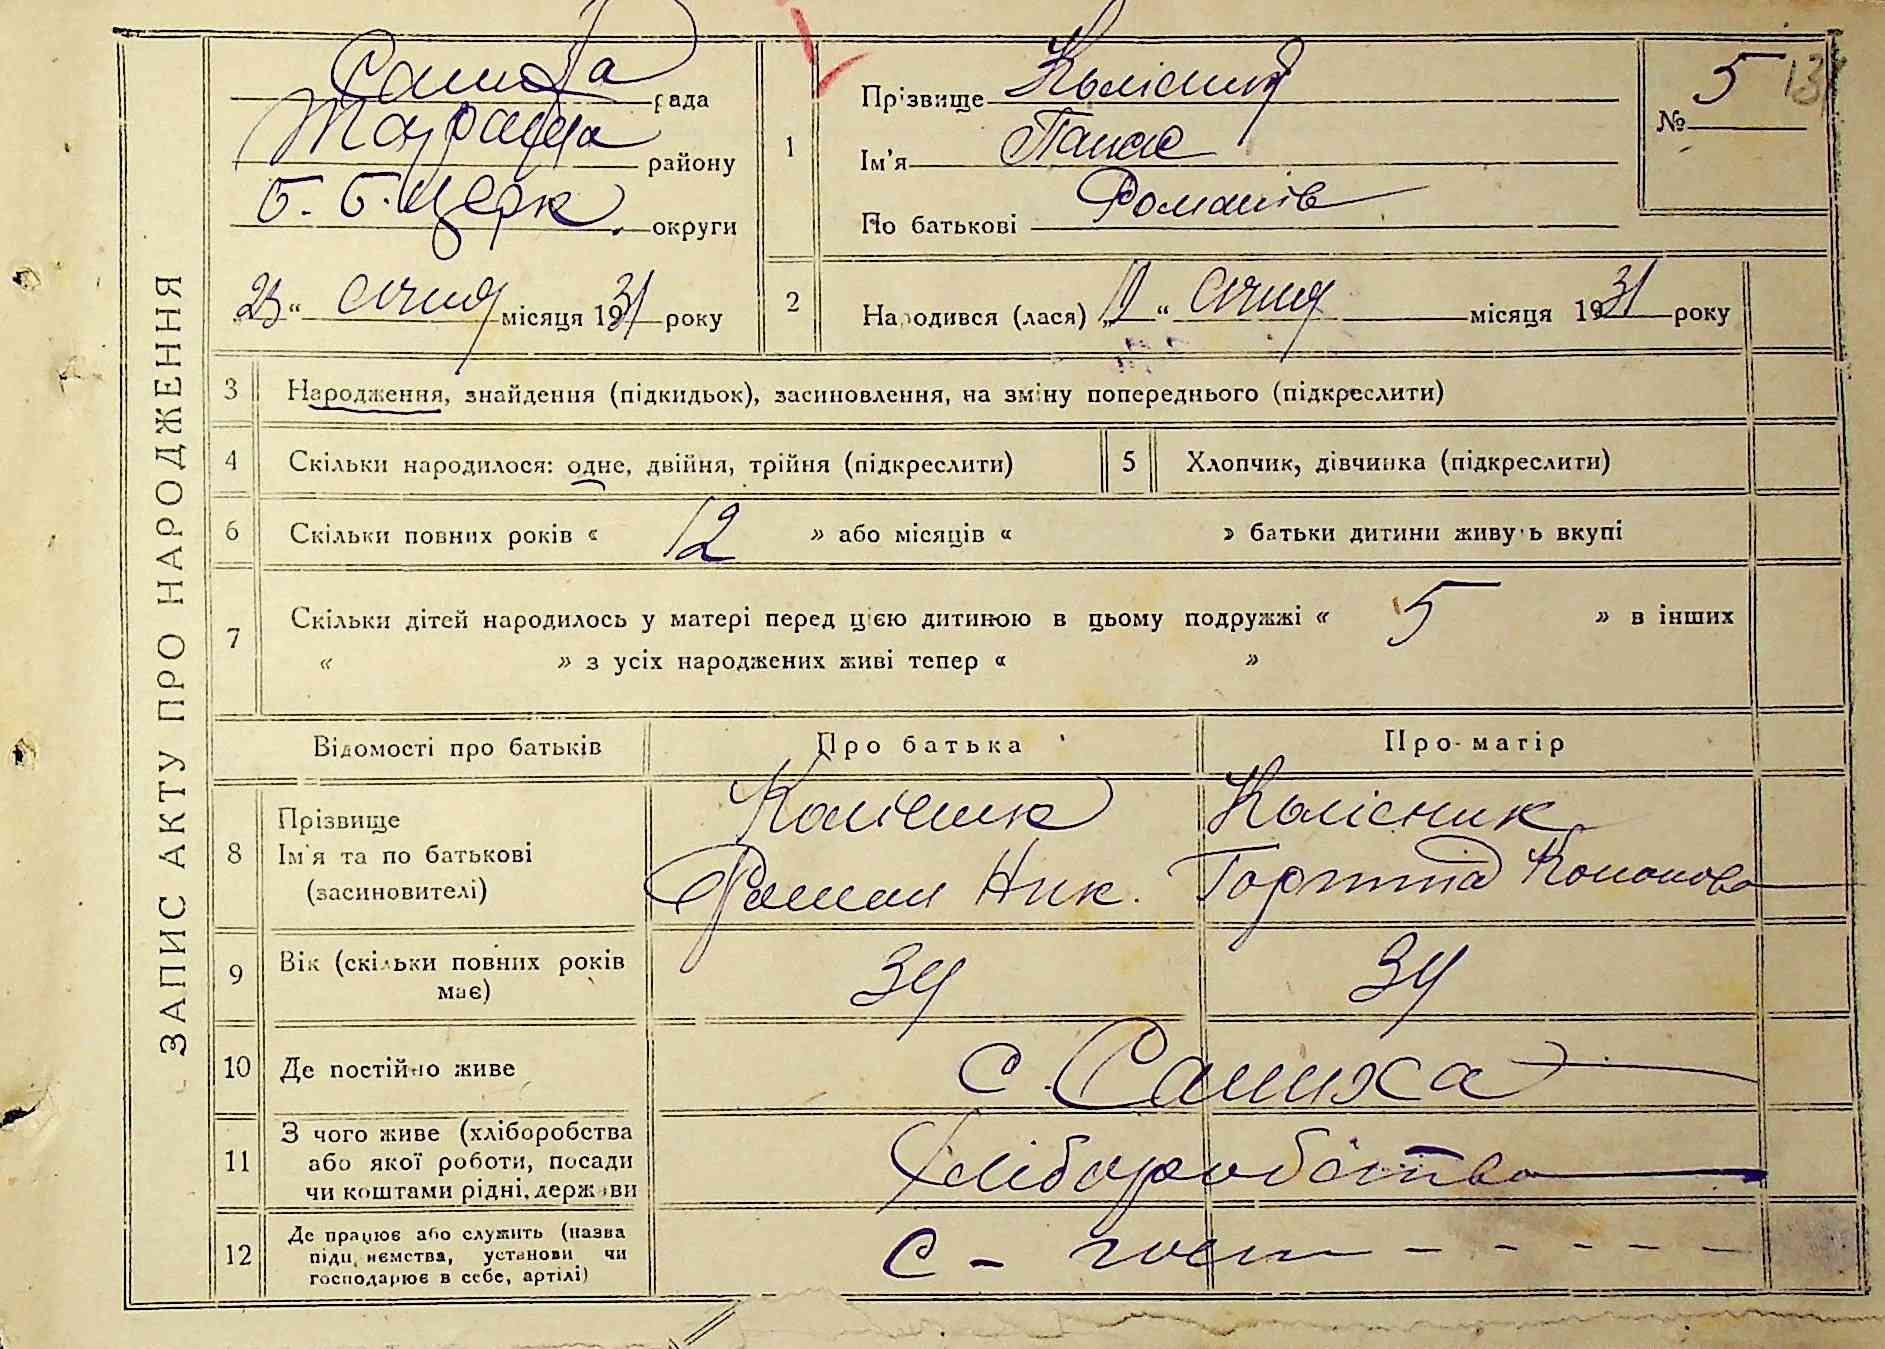 ЗАПИС АКТУ ПРО НАРОДЖЕННЯ
рада
району
Б. Б. Церк. округи
„23“ січня місяця 1931 року
1
Прізвище Колісник
Ім'я Панас
По батькові Романів
№ 5
13
2
Народився (лася) „ “ січня місяця 1931 року
3 Народження, знайдення (підкидьок), засиновлення, на зміну попереднього (підкреслити)
4 Скільки народилося: одне, двійня, трійня (підкреслити)
5 Хлопчик, дівчинка (підкреслити)
6 Скільки повних років « 12 » або місяців « » батьки дитини живуть вкупі
7 Скільки дітей народилось у матері перед цією дитиною в цьому подружжі « 5 » в інших
« » з усіх народжених живі тепер « »
Відомості про батьків
Про батька
Про матір
8
Прізвище
Ім'я та по батькові
(засиновителі)
Колісник
Роман Ник.
Колісник
Горпина Кононова
9
Вік (скільки повних років
має)
34
34
10 Де постійно живе
с. Салиха
11
З чого живе (хліборобства
або якої роботи, посади
чи коштами рідні, держави
Хліборобство
12
Де працює або служить (назва
підприємства, установи чи
господарює в себе, артілі)
с - госп